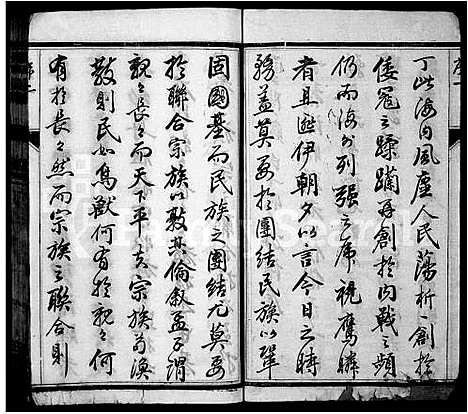 丁此海內風塵人民蕩析一創於
倭寇之蹂躪再創於內戰之頻
仍而海外列強之虎視鷹瞵
者且迤伊朝夕以言今日之時
務蓋莫要於團結民族以鞏
固國基而民族之團結尤莫要
於聯合宗族以敦其倫敘孟子謂
親々長々而天下平夫宗族苟渙
散則民如鳥獸何有於親々何
有於長々然而宗族之聯合則